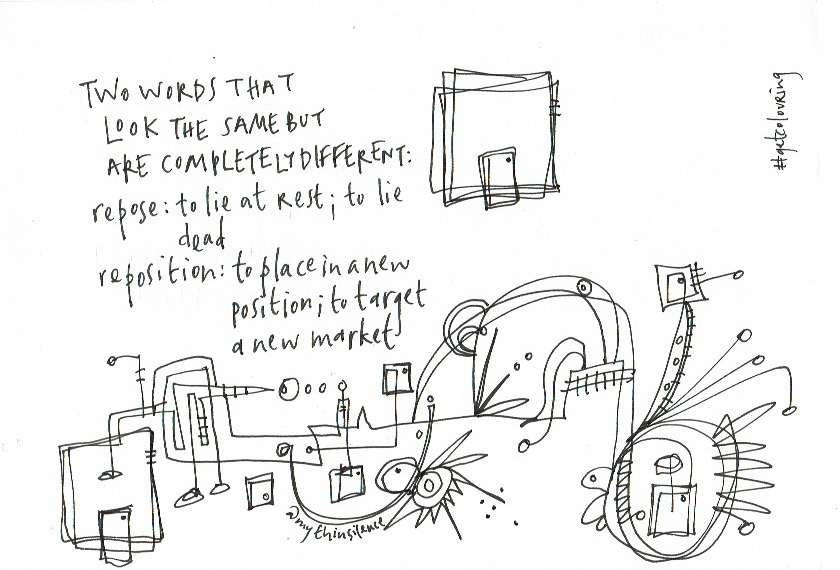 TWO WORDS THAT
LOOK THE SAME BUT
ARE COMPLETELY DIFFERENT:
repose: to lie at rest; to lie
dead
reposition: to place in a new
position; to target
a new market
#getcolouring
@mythinsilence